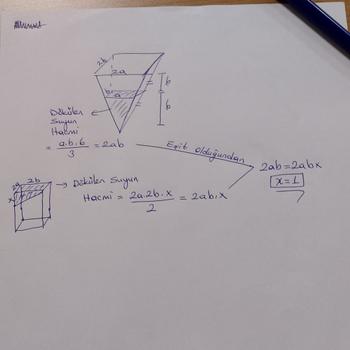 2b
2a
b
a
6
6
Dökülen
Suyun
Hacmi
= a.b.6 / 3 = 2ab
Eşit olduğundan
2ab = 2abx
x = 1
2a
2b
x
→ Dökülen Suyun
Hacmi = 2a.2b.x / 2 = 2ab.x